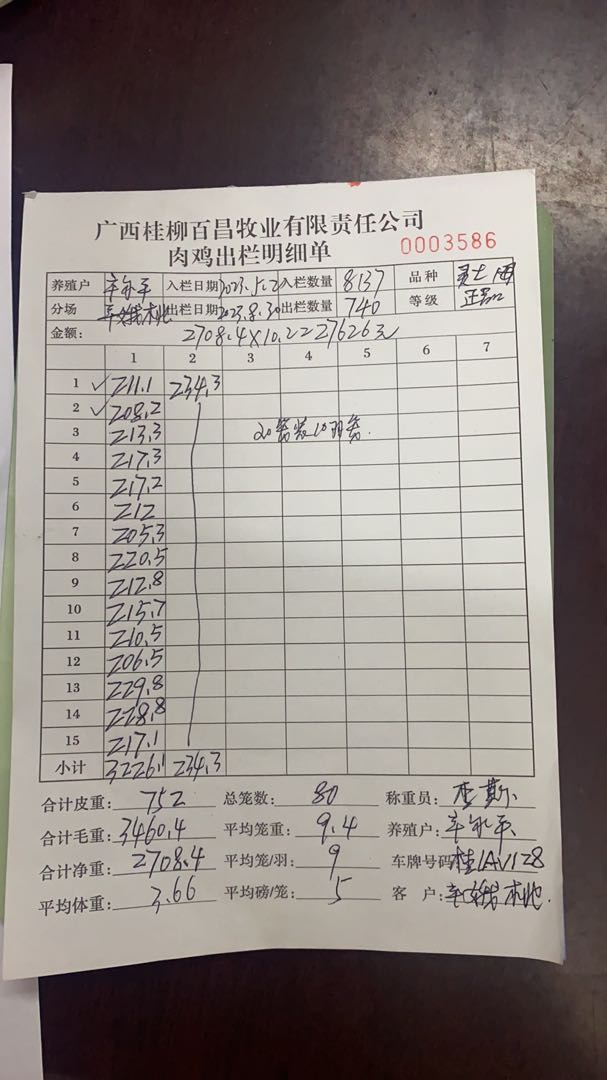 广西桂柳百昌牧业有限责任公司
肉鸡出栏明细单
0003586
养殖户 入栏日期 2023.5.2 入栏数量 8137 品种
分场 出栏日期 2023.8.30 出栏数量 740 等级 正品
金额： 2708.4×10.2=27626元
1 2 3 4 5 6 7
1 ✓ 211.1 234.3
2 ✓ 208.2
3 213.3 20笼装10羽笼.
4 217.3
5 217.2
6 212
7 205.3
8 220.5
9 212.8
10 215.7
11 210.5
12 206.5
13 229.8
14 228.8
15 217.1
小计 3226.1 234.3
合计皮重： 752 总笼数： 80 称重员：
合计毛重： 3460.4 平均笼重： 9.4 养殖户：
合计净重： 2708.4 平均笼/羽： 9 车牌号码 桂1AV128
平均体重： 3.66 平均磅/笼： 5 客 户：